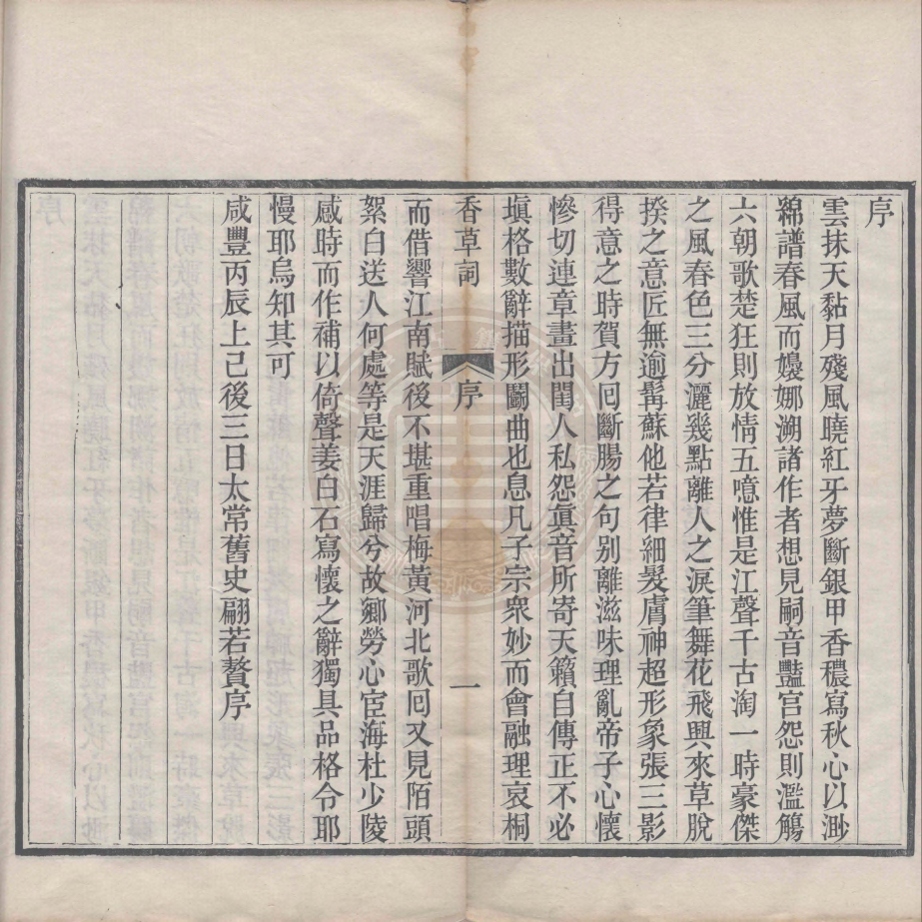 序
雲抹天黏月殘風曉紅牙夢斷銀甲香穠寫秋心以渺
綿譜春風而嫚娜溯諸作者想見嗣音豔宮怨則濫觴
六朝歌楚狂則放情五噫惟是江聲千古淘一時豪傑
之風春色三分灑幾點離人之淚筆舞花飛興來草脫
揆之意匠無逾髯蘇他若律細髮膚神超形象張三影
得意之時賀方囘斷腸之句別離滋味理亂帝子心懷
慘切連章畫出閨人私怨眞音所寄天籟自傳正不必
塡格數辭描形鬭曲也息凡子宗衆妙而會融理哀桐
香草詞
序
一
而借響江南賦後不堪重唱梅黃河北歌囘又見陌頭
絮白送人何處等是天涯歸兮故鄉勞心宦海杜少陵
感時而作補以倚聲姜白石寫懷之辭獨具品格令耶
慢耶烏知其可
咸豐丙辰上巳後三日太常舊史翩若贅序